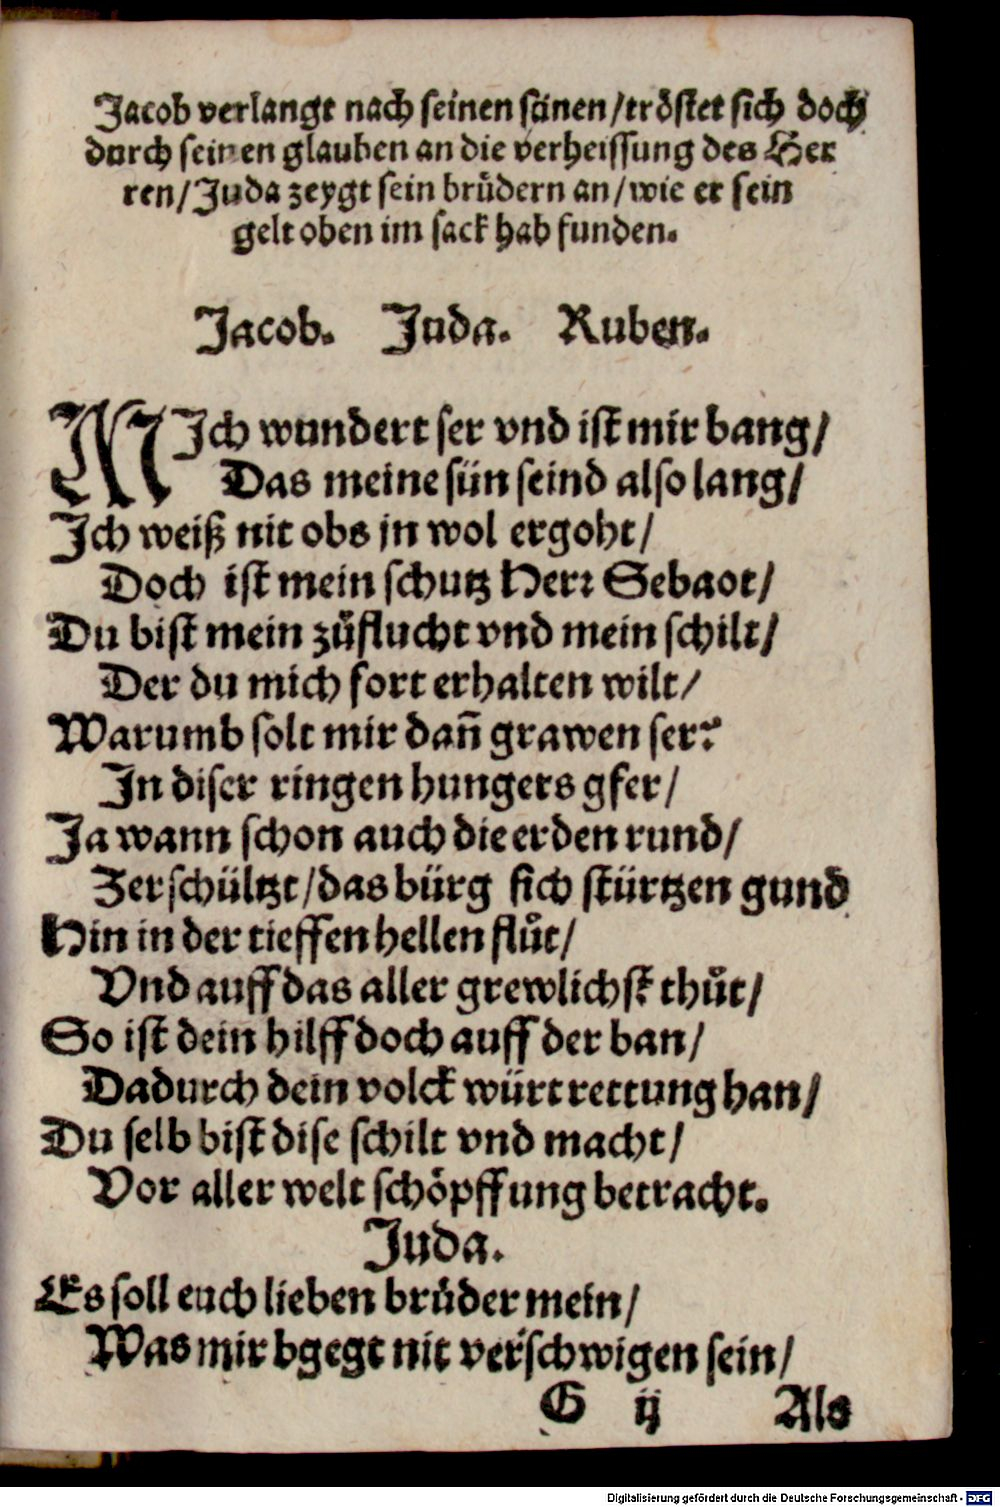 Jacob verlangt nach seinen sünen / tröstet sich doch
durch seinen glauben an die verheissung des Her
ren / Juda zeygt sein brůdern an / wie er sein
gelt oben im sack hab funden.
Jacob. Juda. Ruben.
MIch wundert ser vnd ist mir bang /
Das meine sün seind also lang /
Ich weiß nit obs jn wol ergoht /
Doch ist mein schutz Herr Sebaot /
Du bist mein zůflucht vnd mein schilt /
Der du mich fort erhalten wilt /
Warumb solt mir dañ grawen ser?
In diser ringen hungers gfer /
Ja wann schon auch die erden rund /
Zerschültzt / das bürg sich stürtzen gund
Hin in der tieffen hellen flůt /
Vnd auff das aller grewlichst thůt /
So ist dein hilff doch auff der ban /
Dadurch dein volck würt rettung han /
Du selb bist dise schilt vnd macht /
Vor aller welt schöpffung betracht.
Juda.
Es soll euch lieben brůder mein /
Was mir bgegt nit verschwigen sein /
G ij Als
Digitalisierung gefördert durch die Deutsche Forschungsgemeinschaft - DFG